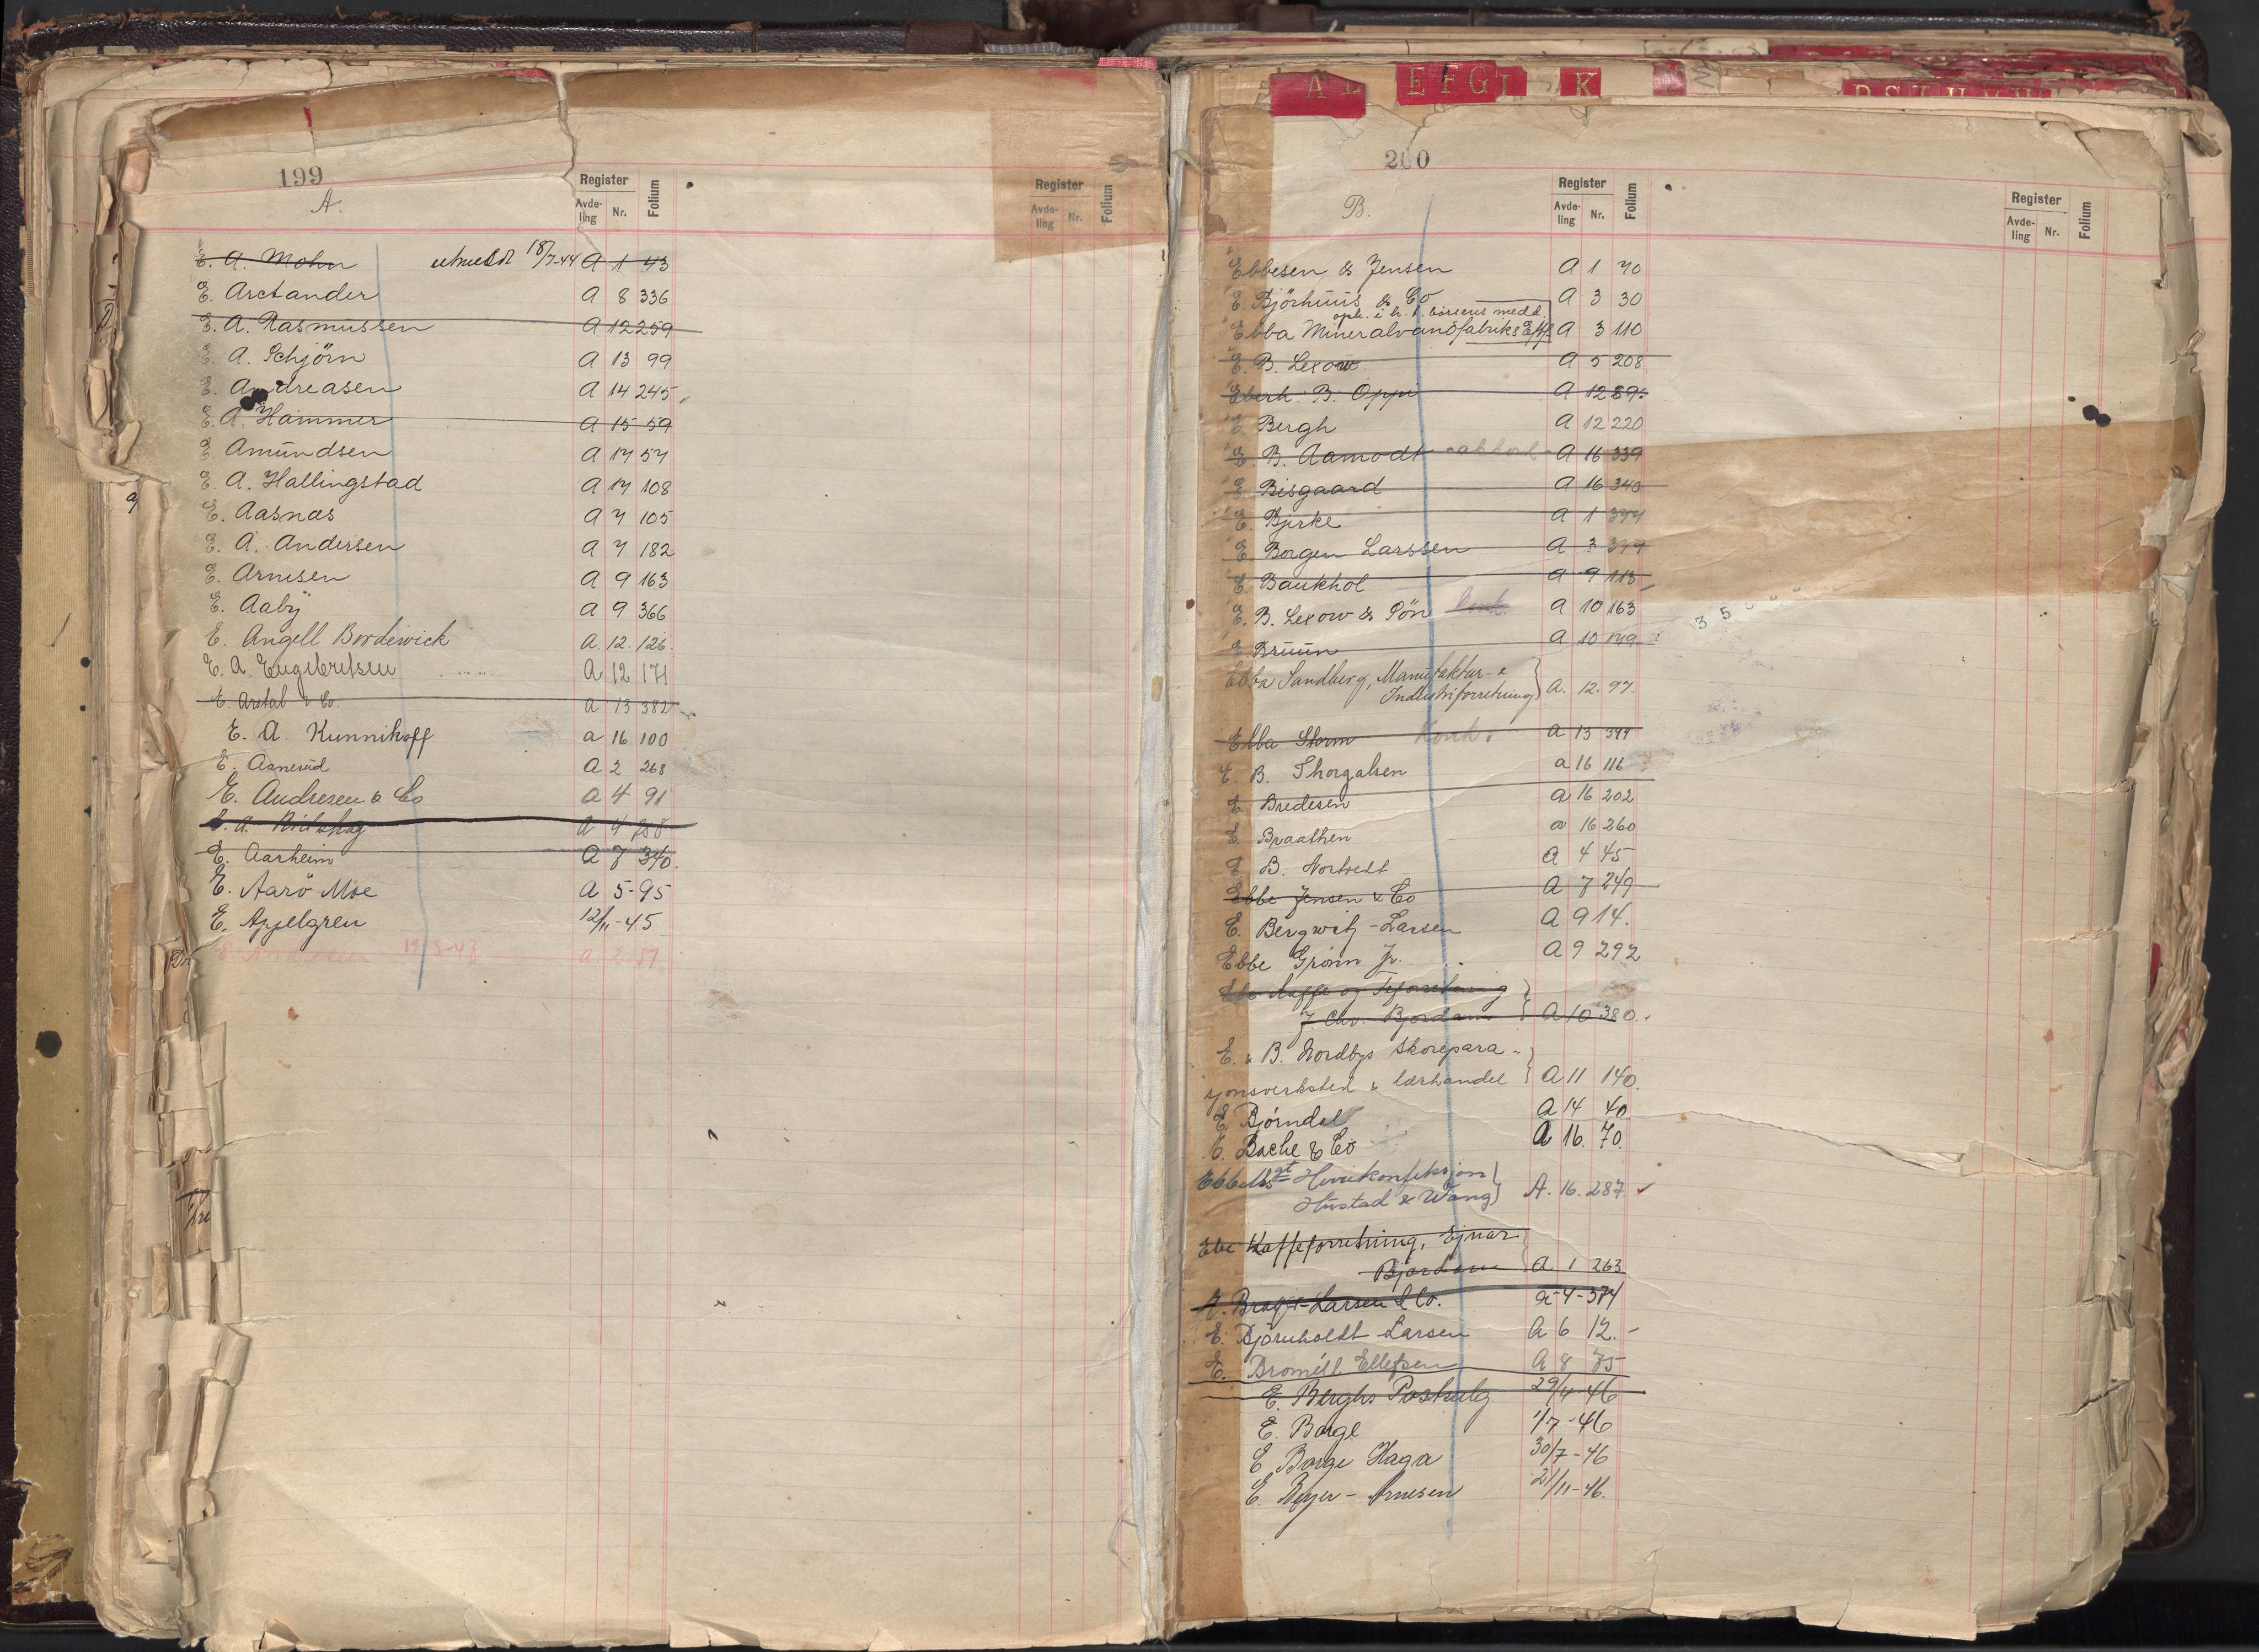 A E F G I K
199
A.
Register
Avde-
ling
Nr.
Folium
Register
Avde-
ling
Nr.
Folium
E. A. Mohn utmeldt 18/7-44 A 1 43
E. Arctander A 8 336
E. A. Rasmussen A 12 259
E. A. Schjörn A 13 99
E. Andreasen A 14 245
E. A. Hammer A 15 59
E. Amundsen A 17 57
E. A. Hallingstad A 17 108
E. Aasnæs A 7 105
E. A. Andersen A 7 182
E. Arnesen A 9 163
E. Aaby A 9 366
E. Angell Bordewick A. 12. 126.
E. A. Engebretsen A 12 171
E. Arstal & Co. A 13 382
E. A. Kunnikoff A 16 100
E. Aanerud A 2 268
E. Andresen & Co A 4 91
E. A. A 4
E. Aarheim A 7 340.
E. Aarö Moe A 5-95
E. Appelgren 12/11-45
E. A 2 87
200
B.
Register
Avde-
ling
Nr.
Folium
Register
Avde-
ling
Nr.
Folium
Ebbesen & Jensen A 1 70
E. Björhuus & Co A 3 30
oph. i h. t. börsens medd.
Ebba Mineralvandfabriks Eftf. A 3 110
E. B. Lexow A 5 208
Eberh. B. Oppi A 12 89
E Bergh A 12 220
E. B. Aamodt A 16 339
E Bisgaard A 16 340
E Bjerke A 1 377
E Borgen Larssen A 3 379
E Baukhol A 9 113
E. B. Lexow & Sön A 10 163
E Bruun A 10 179
Ebba Sandberg, Manufaktur- &
Industriforretning A. 12. 97.
Ebba Storm Konk. A 13 377
E. B. Thorgalsen A 16 116
E. Bredesen A 16 202
E Braathen A 16 260
E B. Nortvedt A 4 45
Ebbe Jensen & Co A 7 249
E. Bergwitz-Larsen A 9 14.
Ebbe Grönn Jr. A 9 292
Ebe Kaffe og Teforretning
J. Chr. Bjordam A 10 380.
E. & B. Nordbys skorepara-
sjonsverksted & lærhandel A 11 140.
E Bjørndal A 14 40
E. Bache & Co A 16. 70.
Ebbells gt Herrekonfeksjon
Hustad & Wang A. 16. 287.
Ebe Kaffeforretning, Ejnar
Bjordam A. 1 263
E. Brage-Larsen & Co. A-4-374
E. Bjørnholdt-Larsen A 6 12.-
E. Bromell Ellefsen A 8 75
E. Berghs Postsalg 29/4-46
E. Borge 1/7-46
E Borge Haga 30/7-46
E. Beyer-Arnesen 21/11-46.